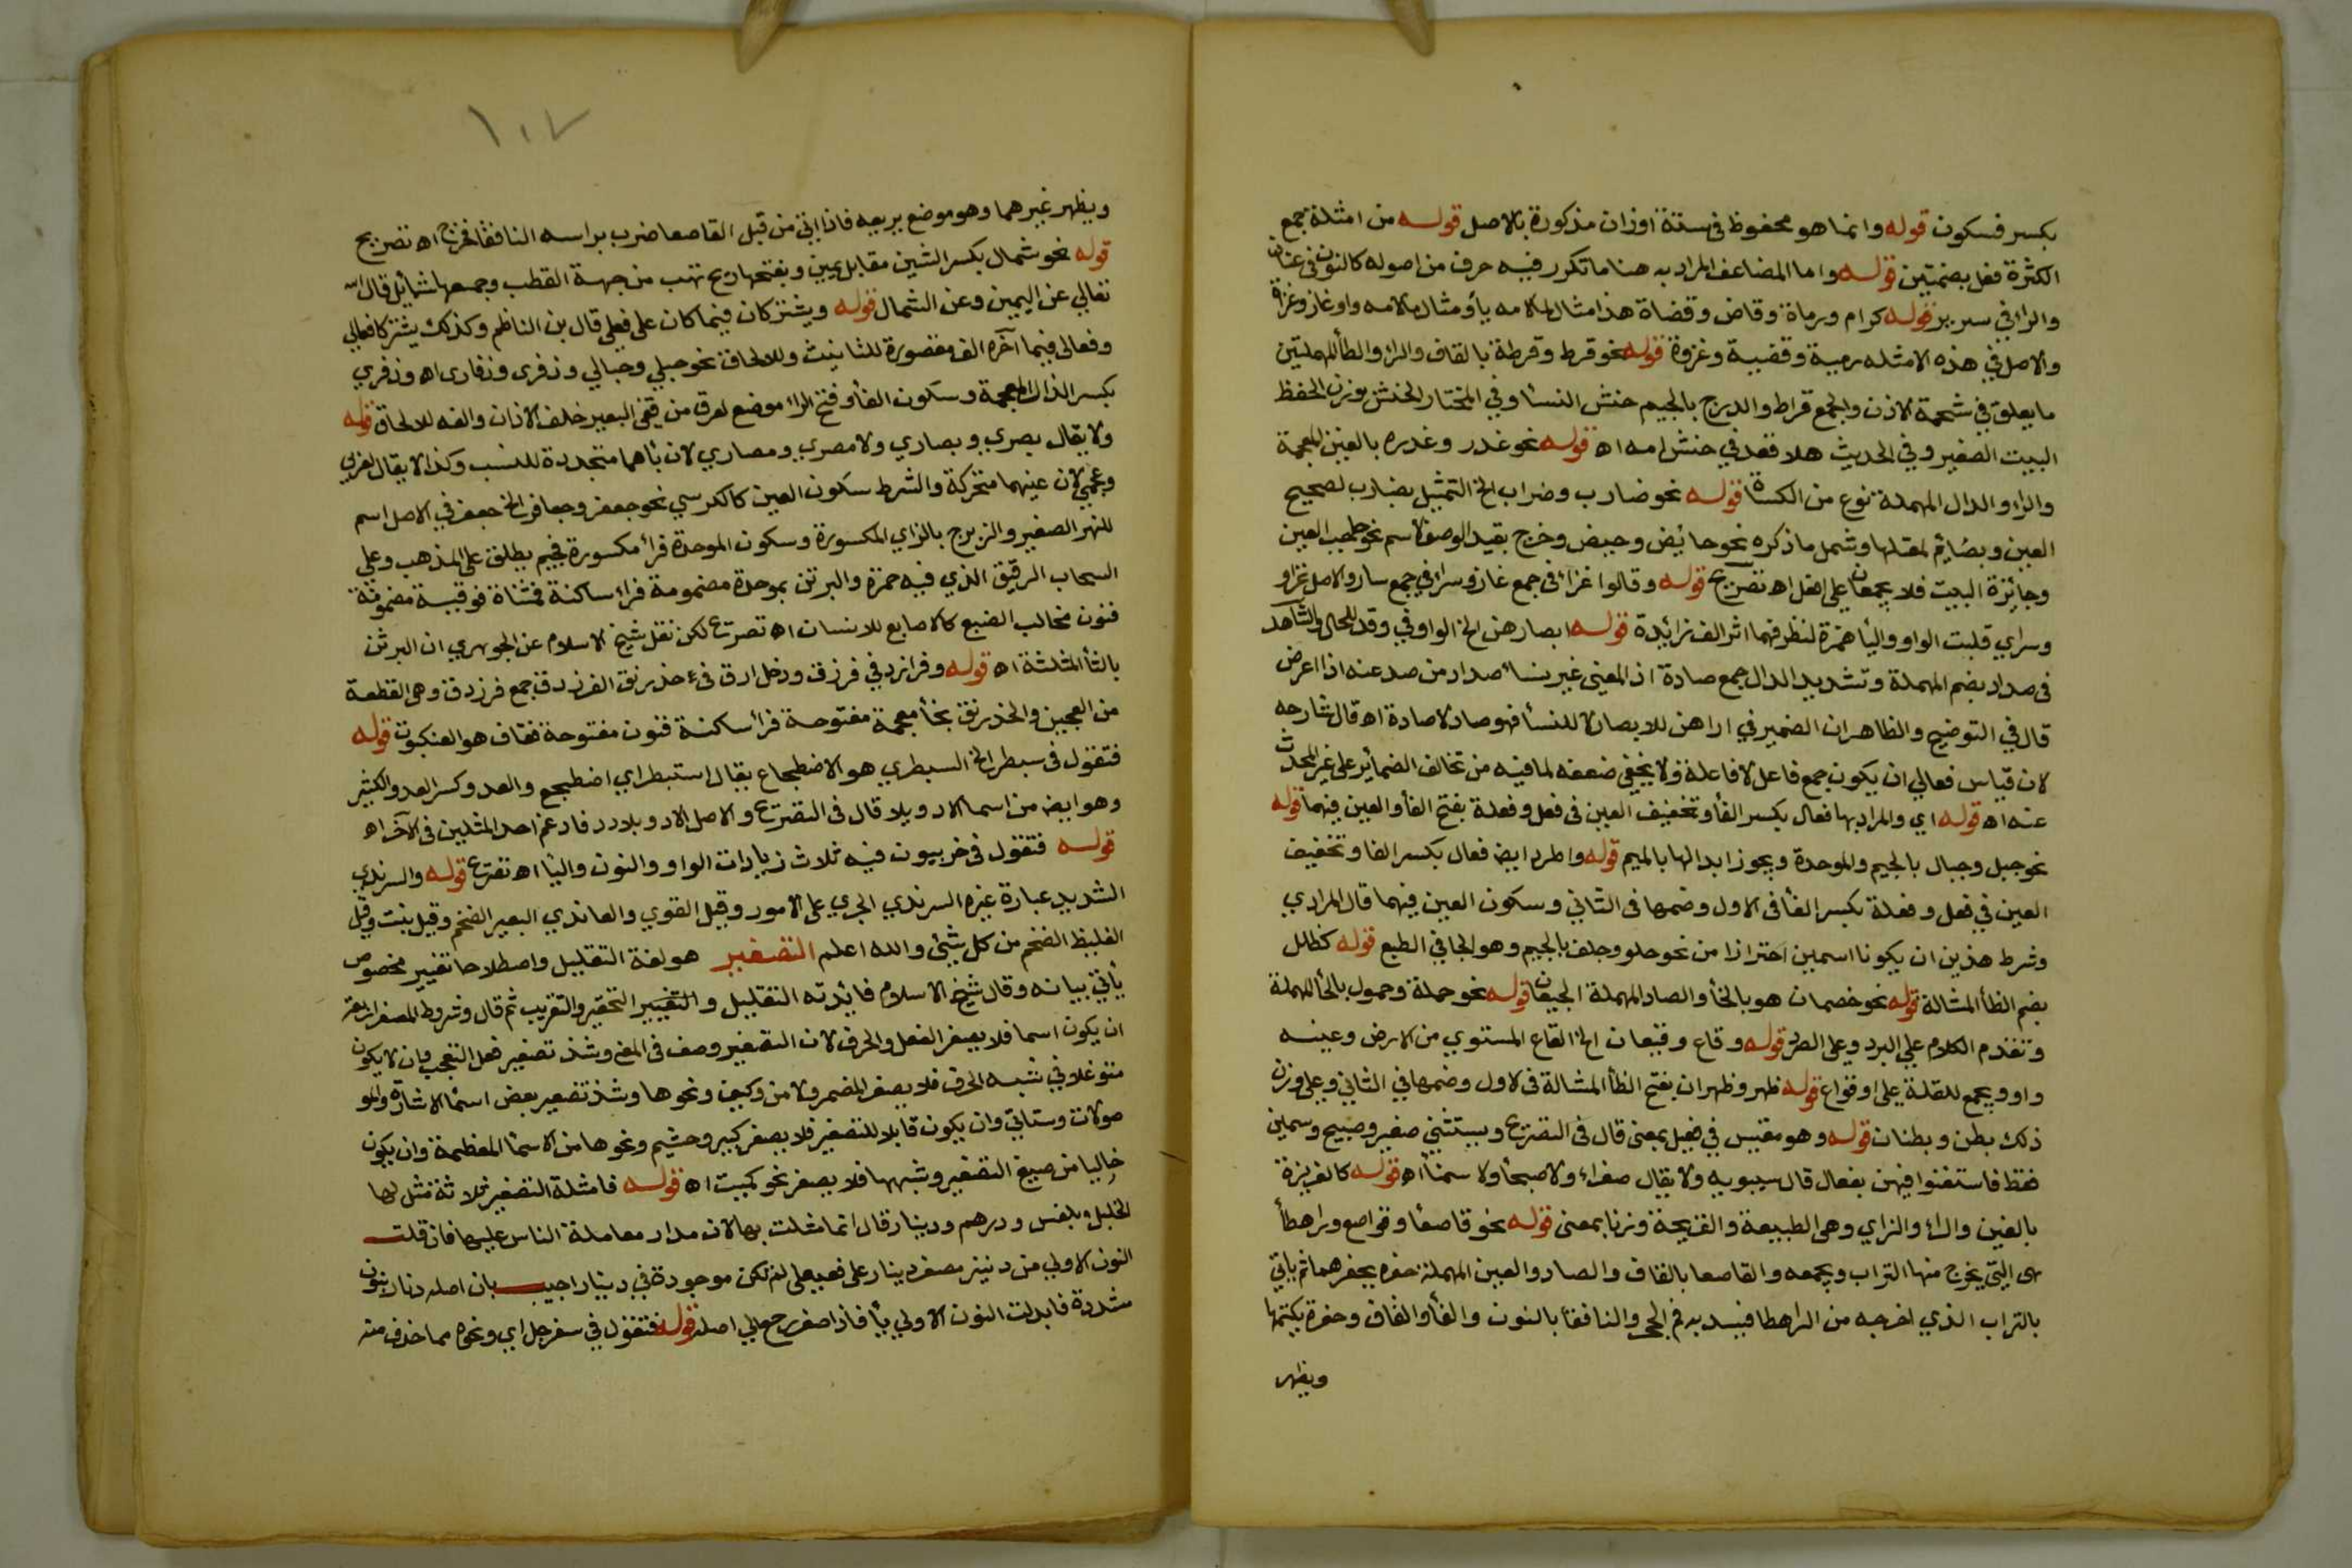 بكسر فسكون قوله وانما هو محفوظ في ستة اوزان مذكورة بالاصل قوله من امثلة جمع
الكثرة فعل بضمتين قوله واما المضاعف المراد به هنا ما تكرر فيه حرف من اصوله كالنون في عنان
والراء في سرير قوله كرام ورماة وقاض وقضاة هذا مثال لما لامه يأ ومثال ما لامه واو غاز وغزاة
والاصل في هذه الامثله رمية وقضية وغزوة قوله نحو قرط وقرطة بالقاف والراء والطأ المهملتين
ما يعلق في شحمة الاذن والجمع قراط والدرج بالجيم حنش النسأ وفي المختار الحنش بوزن الحفظ
البيت الصغير وفي الحديث هلا قعد في حنش امه اه قوله نحو غدر وغدره بالغين المعجمة
والراء والدال المهملة نوع من الكسأة قوله نحو ضارب وضراب الخ التمثيل بضارب لصحيح
العين وبصايم لمعتلها وشمل ما ذكره نحو حائض وحيض وخرج بقيد الوصف الاسم نحو حاجب العين
وجائزة البيت فلا يجمعان على فعل اه تصريح قوله وقالوا غزاء في جمع غاز وسراء في جمع سار والاصل غزاو
وسراي قلبت الواو واليأ همزة لتطرفهما اثر الف زائدة قوله ابصارهن الخ الواو في وقد للحال والشاهد
في صداد بضم المهملة وتشديد الدال جمع صادة اذ المعنى غير نساء صداد من صد عنه اذا اعرض
قال في التوضيح والظاهر ان الضمير في اراهن للابصار لا للنسأ فهو صاد لا صادة اه قال شارحه
لان قياس فعال ان يكون جمع فاعل لا فاعلة ولا يخفى ضعفه لما فيه من تخالف الضمائر على غير المحدث
عنه اه قوله اي والمراد بها فعال بكسر الفأ وتخفيف العين في فعل وفعلة بفتح الفأ والعين فيهما قوله
نحو جبل وجبال بالجيم والموحدة ويجوز ابدالها بالميم قوله واطرد ايضا فعال بكسر الفا وتخفيف
العين في فعل وفعلة بكسر الفأ في الاول وضمها في الثاني وسكون العين فيهما قال المرادي
وشرط هذين ان يكونا اسمين احترازا من نحو حلو وجلف بالجيم وهو الجافي الطبع قوله كظلل
بضم الظأ المشالة قوله نحو خصمان هو بالخأ والصاد المهملة الجيعان قوله نحو حملة وحمول بالحأ المهملة
وتقدم الكلام على البرد وعلى الصرد قوله وقاع وقيعان الخ القاع المستوي من الارض وعينه
واو ويجمع للقلة على اوقواع قوله ظهر وظهران بفتح الظأ المشالة في الاول وضمها في الثاني وعلى وزن
ذلك بطن وبطنان قوله وهو مقيس في فعيل بمعنى قال في التصريح ويستثنى صغير وصبيح وسمين
فقط فاستغنوا فيهن بفعال قال سيبويه ولا يقال صغراء ولا صبحأ ولا سمنأ اه قوله كالغريزة
بالغين والراء والزاي وهي الطبيعة والقريحة وزنا بمعنى قوله نحو قاصعأ وقواصع وراهطأ
هى التي يخرج منها التراب ويجمعه والقاصعا بالقاف والصاد والعين المهملة حفره يحفرهما ثم يأتي
بالتراب الذي اخرجه من الراهطا فيسد به فم الجحر والنافقأ بالنون والفأ والقاف وحفرة يكتمها
ويظهر
١٠٧
ويظهر غيرهما وهو موضع يربعه فاذا اتي من قبل القاصعا ضرب براسه النافقأ فخرج اه تصريح
قوله نحو شمال بكسر الشين مقابل يمين وبفتحها ريح تهب من جهة القطب وجمعها شمائل قال الله
تعالي عن اليمين وعن الشمال قوله ويشتركان فيما كان على فعلى قال بن الناظم وكذلك يشترك فعالي
وفعالى فيما آخره الف مقصورة للتانيث وللالحاق نحو حبلي وحبالي وذفرى وذفارى اه وذفري
بكسر الذال المعجمة وسكون الفأ وفتح الراء موضع لعرق من قفى البعير خلف الاذان والفه للالحاق قوله
ولا يقال بصري وبصاري ولا مصري ومصاري لان يأهما متجددة للنسب وكذا لا يقال لعربي
وعجمي لان عينهما متحركة والشرط سكون العين كالكرسي نحو جعفر وجعافر الخ جعفر في الاصل اسم
للنهر الصغير والزبرج بالزاي المكسورة وسكون الموحدة فراء مكسورة فجيم يطلق على المذهب وعلي
السحاب الرقيق الذي فيه حمزة والبرتن بموحدة مضمومة فراء ساكنة فمثناة فوقية مضمومة
فنون مخالب الضبع كالاصابع للانسان اه تصريح لكن نقل شيخ الاسلام عن الجوهري ان البرثن
بالثأ المثلثة اه قوله وفرازد في فرزق ودخل ارق في خذرنق الفرزدق جمع فرزدقة وهي القطعة
من العجين والخذرنق بخأ معجمة مفتوحة فراء ساكنة فنون مفتوحة فقاف هو العنكبوت قوله
فتقول في سبطر الخ السبطري هو الاضطجاع يقال استبطر اي اضطجع والعد وكسر العدو الكثير
وهو ايضا من اسما الاد ويلا قال في التصريح والاصل الادد ويلادد فادغم احد المثلين في الآخر اه
قوله فتقول في خربيون فيه ثلاث زيادات الواو والنون واليا اه تصريح قوله والسرندي
الشديد عبارة غيره السرندي الجري على الامور وقيل القوي والعلندي البعير الضخم وقيل بنت وقيل
الغليظ الضخم من كل شيئ والله اعلم التصغير هو لغة التقليل واصطلاحا تغيير مخصوص
يأتي بيانه وقال شيخ الاسلام فائدته التقليل والتغيير التحقير والتقريب ثم قال وشروط المصغر اربعة
ان يكون اسما فلا يصغر الفعل والحرف لان التصغير وصف في المعنى وشذ تصغير فعل التعجب وان لا يكون
متوغلا في شبه الحرف فلا يصغر المضمر ولا من وكيف ونحوها وشذ تصغير بعض اسمأ الاشارة والمو
صولات وستاتي وان يكون قابلا للتصغير فلا يصغر كبير وجسيم ونحوها من الاسمأ المعظمة وان يكون
خاليا من صيغ التصغير وشبهها فلا يصغر نحو كميت اه قوله فامثلة التصغير ثلاثة مثل لها
الخليل بفلس ودرهم ودينار قال انما مثلت بها لان مدار معاملة الناس عليها فان قلت
النون الاولي من دنينير مصغر دينار على فعيعل لم تكن موجودة في دينار اجيب بان اصله دنار بنون
مشددة فابدلت النون الاولي يأ فاذا صغر رجع الي اصله قوله فتقول في سفرجل اي ونحوه مما حذف منه